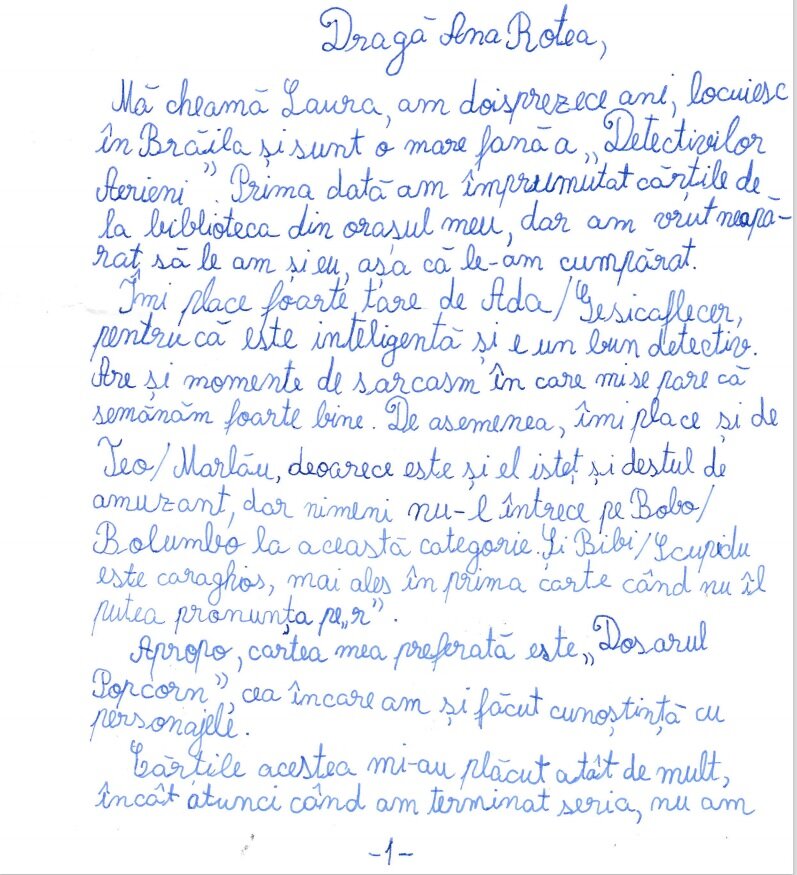 Dragă Ana Rotea,
Mă cheamă Laura, am doisprezece ani, locuiesc
în Brăila și sunt o mare fană a „Detectivilor
Aerieni”. Prima dată am împrumutat cărțile de
la biblioteca din orașul meu, dar am vrut neapă-
rat să le am și eu, așa că le-am cumpărat.
Îmi place foarte tare de Ada/Gesicaflecer,
pentru că este inteligentă și e un bun detectiv.
Are și momente de sarcasm în care mi se pare că
semănăm foarte bine. De asemenea, îmi place și de
Teo/Marlău, deoarece este și el isteț și destul de
amuzant, dar nimeni nu-l întrece pe Bobo/
Bolumbo la această categorie. Și Bibi/Scupidu
este caraghios, mai ales în prima carte când nu îl
putea pronunța pe „r”.
Apropo, cartea mea preferată este „Dosarul
Popcorn”, cea în care am și făcut cunoștință cu
personajele.
Cărțile acestea mi-au plăcut atât de mult,
încât atunci când am terminat seria, nu am
-1-